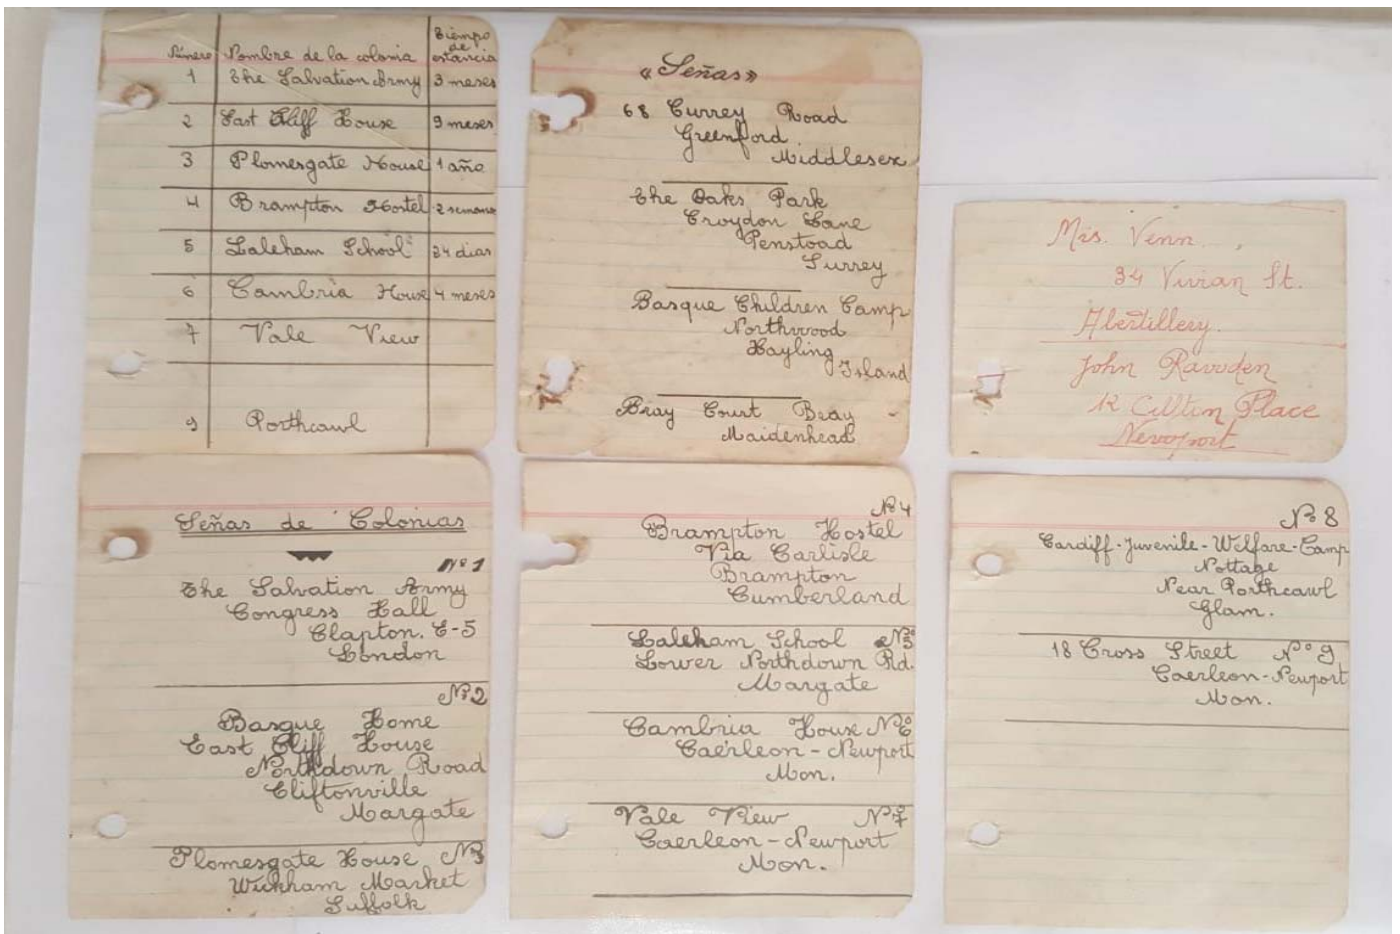 Número Nombre de la colonia Tiempo de estancia
1 The Salvation Army 3 meses
2 East Cliff House 9 meses
3 Plomesgate House 1 año
4 Brampton Hostel 2 semanas
5 Laleham School 24 dias
6 Cambria House 4 meses
7 Vale View
9 Porthcawl
«Señas»
68 Currey Road
Greenford
Middlesex
The Oaks Park
Croydon Lane
Penstoad
Surrey
Basque Children Camp
Northwood
Hayling
Island
Bray Court Bray -
Maidenhead
Mrs. Venn,
34 Vivian St.
Abertillery.
John Ravden
12 Place
Newport
Señas de Colonias
Nº 1
The Salvation Army
Congress Hall
Clapton. E-5
London
Nº 2
Basque Home
East Cliff House
Northdown Road
Cliftonville
Margate
Plomesgate House Nº 3
Wickham Market
Suffolk
Nº 4
Brampton Hostel
Via Carlisle
Brampton
Cumberland
Laleham School Nº 5
Lower Northdown Rd.
Margate
Cambria House Nº 6
Caerleon-Newport
Mon.
Vale View Nº 7
Caerleon-Newport
Mon.
Nº 8
Cardiff-Juvenile-Welfare-Camp
Nottage
Near Porthcawl
Glam.
18 Cross Street Nº 9
Caerleon-Newport
Mon.